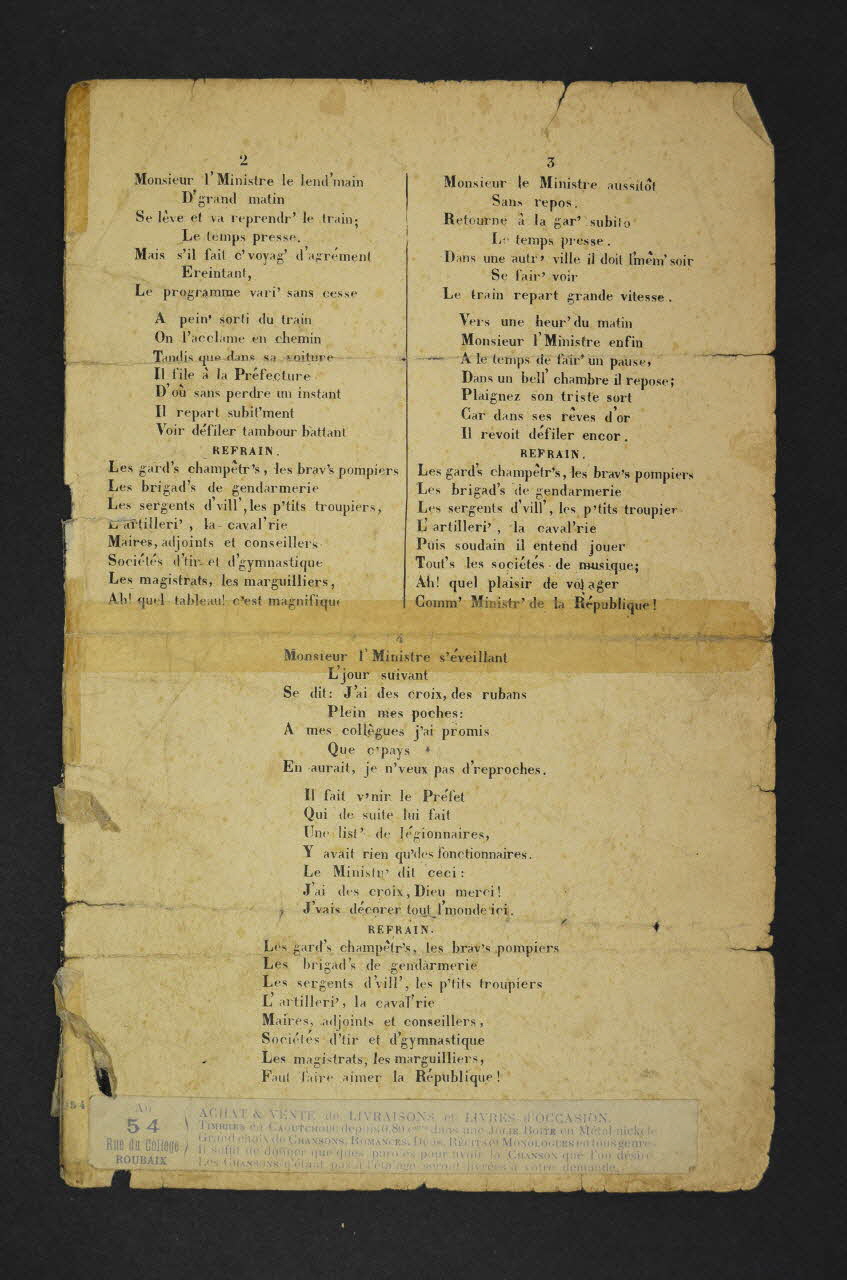 2
Monsieur l'Ministre le lend'main
D'grand matin
Se lève et va reprendr' le train;
Le temps presse.
Mais s'il fait c'voyag' d'agrément
Ereintant,
Le programme vari' sans cesse
A pein' sorti du train
On l'acclame en chemin
Tandis que dans sa voiture
Il file à la Préfecture
D'où sans perdre un instant
Il repart subit'ment
Voir défiler tambour battant
REFRAIN.
Les gard's champêtr's, les brav's pompiers
Les brigad's de gendarmerie
Les sergents d'vill', les p'tits troupiers,
L'artilleri', la caval'rie
Maires, adjoints et conseillers
Sociétés d'tir et d'gymnastique
Les magistrats, les marguilliers,
Ah! quel tableau! c'est magnifique
3
Monsieur le Ministre aussitôt
Sans repos.
Retourne à la gar' subito
Le temps presse.
Dans une autr' ville il doit l'mêm' soir
Se fair' voir
Le train repart grande vitesse.
Vers une heur' du matin
Monsieur l'Ministre enfin
A le temps de fair' un pause,
Dans un bell' chambre il repose;
Plaignez son triste sort
Car dans ses rêves d'or
Il revoit défiler encor.
REFRAIN.
Les gard's champêtr's, les brav's pompiers
Les brigad's de gendarmerie
Les sergents d'vill', les p'tits troupier
L'artilleri', la caval'rie
Puis soudain il entend jouer
Tout's les sociétés de musique;
Ah! quel plaisir de voyager
Comm' Ministr' de la République!
4
Monsieur l'Ministre s'éveillant
L'jour suivant
Se dit: J'ai des croix, des rubans
Plein mes poches:
A mes collègues j'ai promis
Que c'pays
En aurait, je n'veux pas d'reproches.
Il fait v'nir le Préfet
Qui de suite lui fait
Une list' de légionnaires,
Y avait rien qu'des fonctionnaires.
Le Ministr' dit ceci:
J'ai des croix, Dieu merci!
J'vais décorer tout l'monde ici.
REFRAIN.
Les gard's champêtr's, les brav's pompiers
Les brigad's de gendarmerie
Les sergents d'vill', les p'tits troupiers
L'artilleri', la caval'rie
Maires, adjoints et conseillers,
Sociétés d'tir et d'gymnastique
Les magistrats, les marguilliers,
Faut faire aimer la République!
54
Au
54
Rue du Collège
ROUBAIX
ACHAT & VENTE de LIVRAISONS et LIVRES d'OCCASION.
TIMBRES en CAOUTCHOUC depuis 0.80 dans une JOLIE BOITE en Métal nickelé
Grand choix de CHANSONS, ROMANCES, Duos, RÉCITS et MONOLOGUES en tous genres
Il suffit de donner quelques paroles pour avoir la CHANSON que l'on désire
Les CHANSONS n'étant pas à l'étalage seront livrées à votre demande.